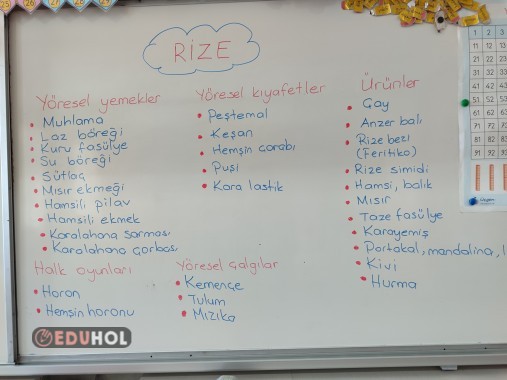 RİZE
Yöresel yemekler
Muhlama
Laz böreği
Kuru fasülye
Su böreği
Sütlaç
Mısır ekmeği
Hamsili pilav
Hamsili ekmek
Karalahana sarması
Karalahana çorbası
Yöresel kıyafetler
Peştemal
Keşan
Hemşin çorabı
Puşi
Kara lastik
Ürünler
Çay
Anzer balı
Rize bezi
(Feritiko)
Rize simidi
Hamsi, balık
Mısır
Taze fasülye
Karayemiş
Portakal, mandalina,
Kivi
Hurma
Halk oyunları
Horon
Hemşin horonu
Yöresel çalgılar
Kemençe
Tulum
Mızıka
EDUHOL
25 26 27 28 29
1 2 3
11 12 13
21 22 23
31 32 33
41 42 43
51 52 53
61 62 63
71 72 73
81 82 83
91 92 93